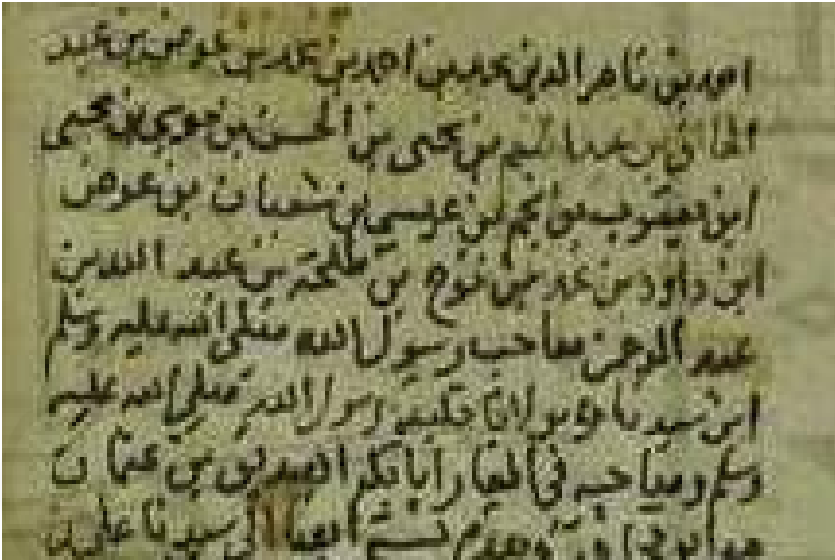 احمد بن ناصر الدين محمد بن احمد بن محمد بن عوض بن عبد
الخالق بن عبد المنعم بن يحيى بن الحسن بن موسى بن يحيى
ابن يعقوب بن نجم بن عيسى بن شعبان بن عوض
ابن داود بن محمد بن نوح بن طلحة بن عبد الله بن
عبد الرحمن صاحب رسول الله صلى الله عليه وسلم
ابن سيدنا ومولانا خليفة رسول الله صلى الله عليه
وسلم وصاحبه في الغار ابا بكر الصديق بن عثمان
سيدنا على بن